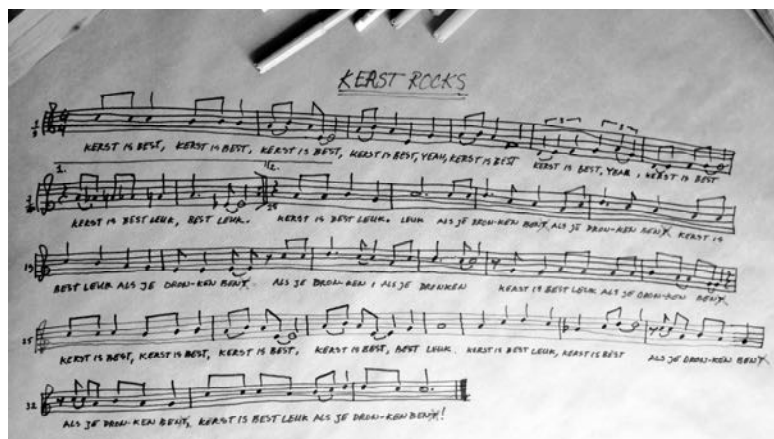 KERST ROCKS
KERST IS BEST, KERST IS BEST, KERST IS BEST, KERST IS BEST, YEAH, KERST IS BEST KERST IS BEST, YEAH, KERST IS BEST
1. 2.
KERST IS BEST LEUK, BEST LEUK. KERST IS BEST LEUK. LEUK ALS JE DRON-KEN BENT ALS JE DRON-KEN BENT KERST IS
19
BEST LEUK ALS JE DRON-KEN BENT ALS JE DRON-KEN, ALS JE DRONKEN KERST IS BEST LEUK ALS JE DRON-KEN BENT
25
KERST IS BEST, KERST IS BEST, KERST IS BEST, KERST IS BEST, BEST LEUK. KERST IS BEST LEUK, KERST IS BEST ALS JE DRON-KEN BENT
32
ALS JE DRON-KEN BENT, KERST IS BEST LEUK ALS JE DRON-KEN BENT!